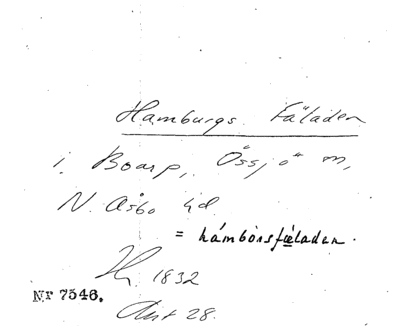 Hamburgs Fäladen
i. Boarp, Össjö sn,
N. Åsbo hd
= hámbórsfæladen.
1832
Nr 7546.
28.